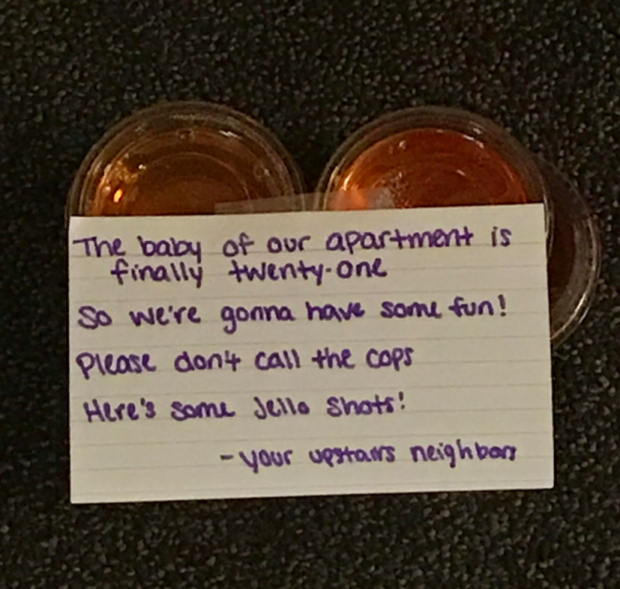 The baby of our apartment is
finally twenty-one
So we're gonna have some fun!
Please don't call the cops
Here's some Jello Shots!
- your upstairs neighbors